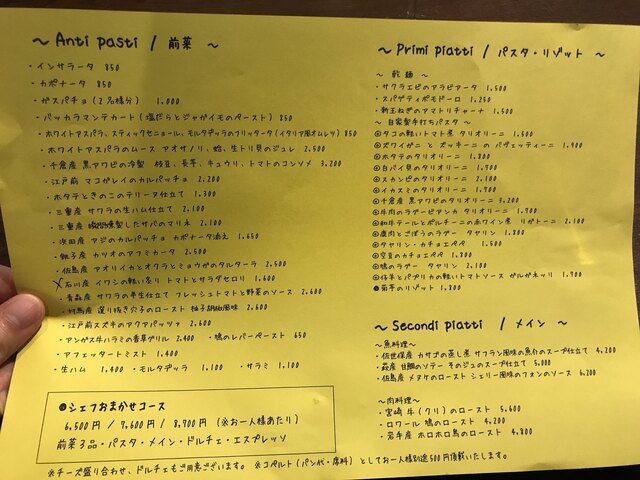 ~ Anti pasti / 前菜 ~
・インサラータ 850
・カポナータ 850
・ガスパチョ(2名様分) 1,000
・バッカラマンテカート(塩だらとジャガイモのペースト) 850
・ホワイトアスパラ、スティックセニョール、モルタデッラのフリッタータ(イタリア風オムレツ) 850
・ホワイトアスパラのムース アオサノリ、蛤、生トリ貝のジュレ 2,500
・千倉産 黒アワビの冷製 枝豆、長芋、キュウリ、トマトのコンソメ 3,200
・江戸前 マコガレイのカルパッチョ 2,200
・ホタテときのこのテリーヌ仕立て 1,300
・三重産 サワラの生ハム仕立て 2,100
・三重産 瞬間燻製したサバのマリネ 2,100
・浜田産 アジのカルパッチョ カポナータ添え 1,650
・銚子産 カツオのアフミカータ 2,500
・佐島産 アオリイカとオクラとミョウガのタルターラ 2,500
・石川産 イワシの軽い炙り トマトとサラダセロリ 1,600
・青森産 サワラの半生仕立て フレッシュトマトと野菜のソース 2,600
・竹島産 選り抜き穴子のロースト 柚子胡椒風味 2,600
・江戸前スズキのアクアパッツァ 2,600
・アンガス牛ハラミの香草グリル 2,400 ・鳩のレバーペースト 650
・アフェッタートミスト 1,400
・生ハム 1,400 ・モルタデッラ 1,100 ・サラミ 1,100
●シェフおまかせコース
6,500円 / 7,600円 / 8,700円 (※お一人様あたり)
前菜3品・パスタ・メイン・ドルチェ・エスプレッソ
※チーズ盛り合わせ、ドルチェもご用意ございます。 ※コペルト(パン代・席料)としてお一人様別途500円頂戴いたします。
~ Primi piatti / パスタ・リゾット ~
~ 乾麺 ~
・サクラエビのアラビアータ 1,500
・スパゲティポモドーロ 1,250
・新玉ねぎのアマトリチャーナ 1,500
~ 自家製手打ちパスタ ~
◎タコの軽いトマト煮 タリオリーニ 1,500
◎ズワイガニ と ズッキーニ の パヴェッティーニ 1,900
◎ホタテのタリオリーニ 1,800
◎白バイ貝のタリオリーニ 1,700
◎スカンピのタリオリーニ 2,100
◎イカスミのタリオリーニ 1,700
◎千倉産 黒アワビのタリオリーニ 3,200
●牛肉のラグービアンカ タリオリーニ 1,900
●和牛テールとポルチーニの赤ワイン煮 リガトーニ 2,100
●鹿肉とごぼうのラグー タヤリン 1,800
●タヤリン・カチョエペペ 1,500
●空豆のカチョエペペ 1,800
●鳩のラグー タヤリン 2,100
●仔羊とパプリカの軽いトマトソース ガルガネッリ 1,900
●岩手のリゾット 1,800
~ Secondi piatti / メイン ~
~魚料理~
・佐世保産 カサゴの蒸し煮 サフラン風味の魚介のスープ仕立て 4,200
・萩産 甘鯛のソテー そのジュのスープ仕立て 5,000
・佐島産 メダケのロースト シェリー風味のフォンのソース 6,200
~肉料理~
・宮崎 牛(クリ)のロースト 5,600
・ロワール 鳩のロースト 4,200
・岩手産 ホロホロ鳥のロースト 4,800